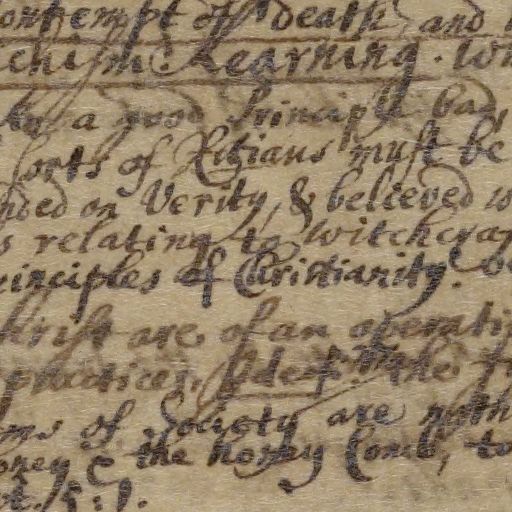 ontempt of death, and
chism: Learning. Wh
to a good Principle bad
sorts of Ritians must be
nded on Verity, & believed
s relating to Witchcra
rinciples of Christianity.
hrist are of an operati
practices. Idem. The
ms of Society are
oney & the honey Comb, to